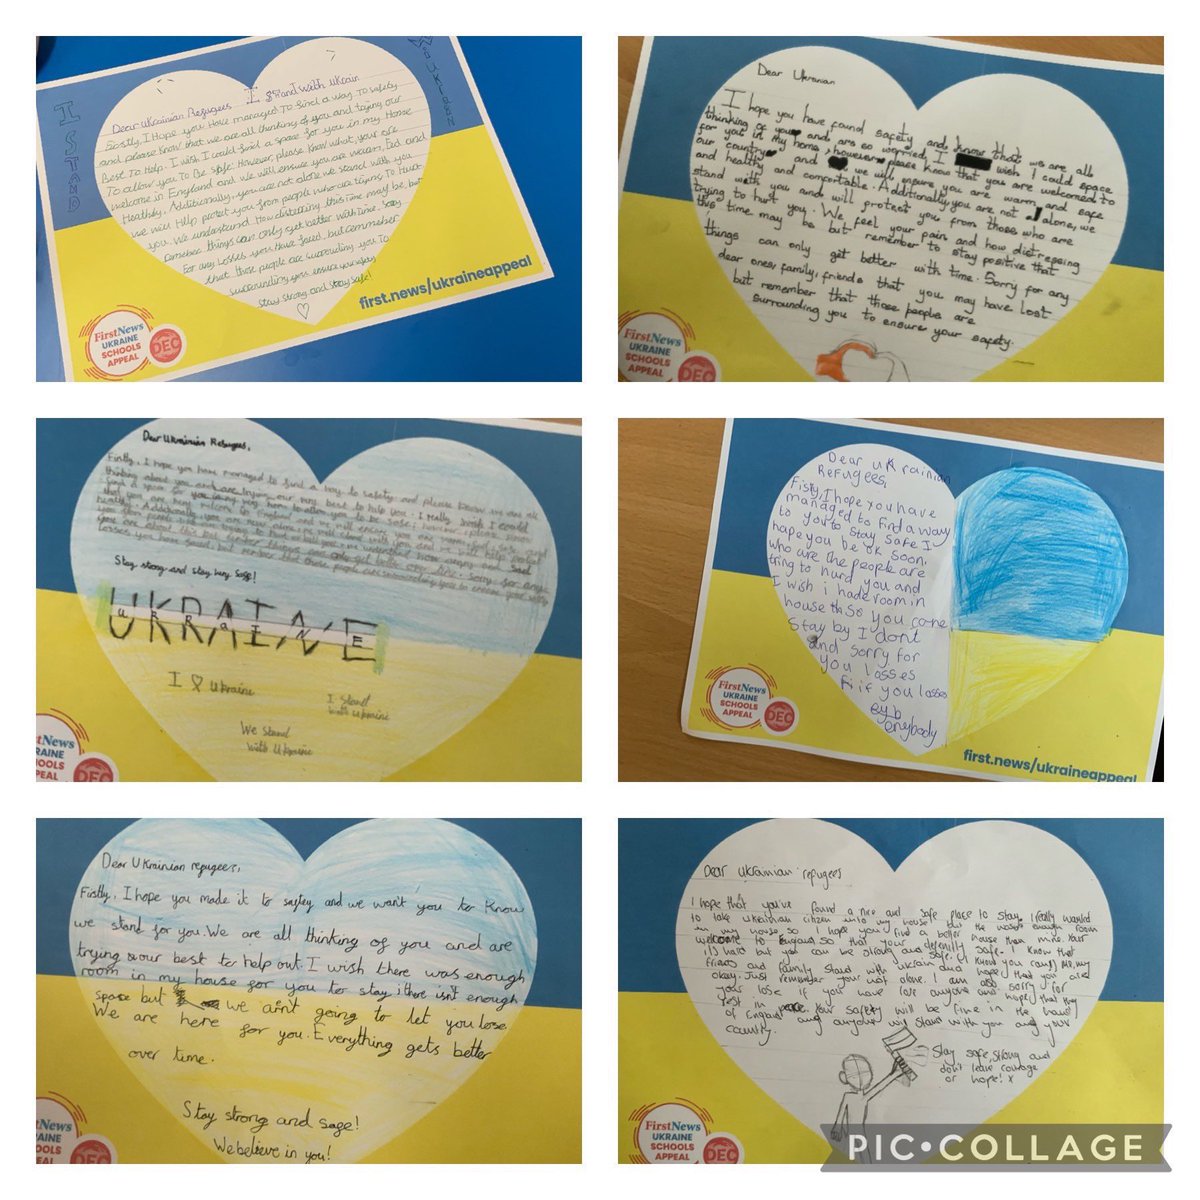 I STAND
With UKrain
Dear Ukrainian Refugees I Stand with Ukrain
Firstly, I Hope you Have managed To find a way To safety
and please Know that we are all thinking of you and
Best To Help. I wish I could find a space for you in my Home
To allow you To Be safe. However, please Know
welcome in England and We will ensure you are warm, Fed and
Heathdy. Additionally, you are not alone we stand with you
we will Help protect you from people who are Trying To Hurt
you. We understand How distressing this Time may be, but
things can only get better with Time.
for any Losses you Have faced, but
that those people are surrounding you To
ensure you safety
Stay strong and stay safe!
first.news/ukraineappeal
FirstNews
UKRAINE
SCHOOLS
APPEAL
DEC
Dear Ukranian
I hope you have found safety and know that we are all
thinking of you and are so worried. I wish I could space
for you in my home, however please know that you are welcomed to
our country and we will ensure you are warm and safe
and healthy and comfortable. Additionally you are not alone, we
stand with you and will protect you from those who are
trying to hurt you. We feel your pain and how distressing
this time may be but remember to stay positive that
things can only get better with time. Sorry for any
dear ones, family, friends that you may have lost
but remember that those people are
surrounding you to ensure your safety.
FirstNews
UKRAINE
SCHOOLS
APPEAL
DEC
Dear Ukrainian Refugees,
Firstly, I hope you have managed to find a way to safety and please know we are all
thinking about you and are trying our very best to help you. I really wish I could
find a space for you in my very home to allow you to be safe;
Stay strong and stay very safe!
UKRAINE
UKRAINE
I Ukraine
I Stand
with Ukraine
We Stand
with Ukraine
stNews
RAINE
HOOLS
PEAL
DEC
Dear uKrainian
Refugees,
Fisty, I hope you have
managed to find a way
to you to stay safe I
hope you be ok soon.
who are the people are
tring to hurd you and
I wish i hade room in
house th so you cane
stay by I dont
and sorry for
you lasses
if you lasses
enybody
FirstNews
UKRAINE
SCHOOLS
APPEAL
DEC
first.news/ukraineappeal
Dear Ukrainian repugees,
Firstly, I hope you made it to safey and we want you to Know
we stand for you. We are all thinking of you and are
trying our best to help out. I wish there was enough
room in my house for you to stay; there isn't enough
space but we ain't going to let you lose
We are here for you. Everything gets better
over time.
Stay strong and safe!
We believe in you!
stNews
RAINE
HOOLS
PEAL
DEC
Dear Ukrainian repugees
I hope that you've found a nice and safe place to stay, I really wanted
to take Ukrainian citizen into my house but the wasn't enough room
in my house, so I hope you find a better house then mine. Your
welcome to England so that your defenitly safe. Know that
it's hard but you can be strong and safe. I know you can!
friends and family stand with ukrain and hope that you are
okay. Just remember your not alone. I am also sorry for
your lose if you have lose anyone and hope that they
rest in peace. Your safety will be fine in the
of England and anyone will stand with you and your
country.
Stay safe, strong and
don't leave courage
or hope! x
FirstNews
UKRAINE
SCHOOLS
APPEAL
DEC
PIC•COLLAGE